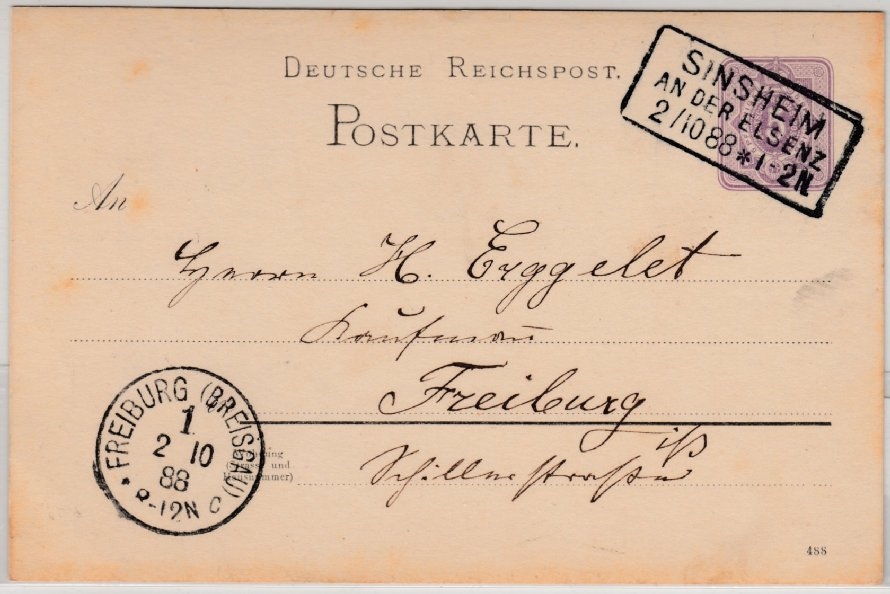 DEUTSCHE REICHSPOST.
POSTKARTE.
SINSHEIM
AN DER ELSENZ
2/10 88 * 1-2N
An
Herrn H. Erggelet
Kaufmann
Freiburg
i/B
Schillerstraße
FREIBURG (BREISGAU)
1
2 10
88
8-12N
(Strasse und
Hausnummer)
488